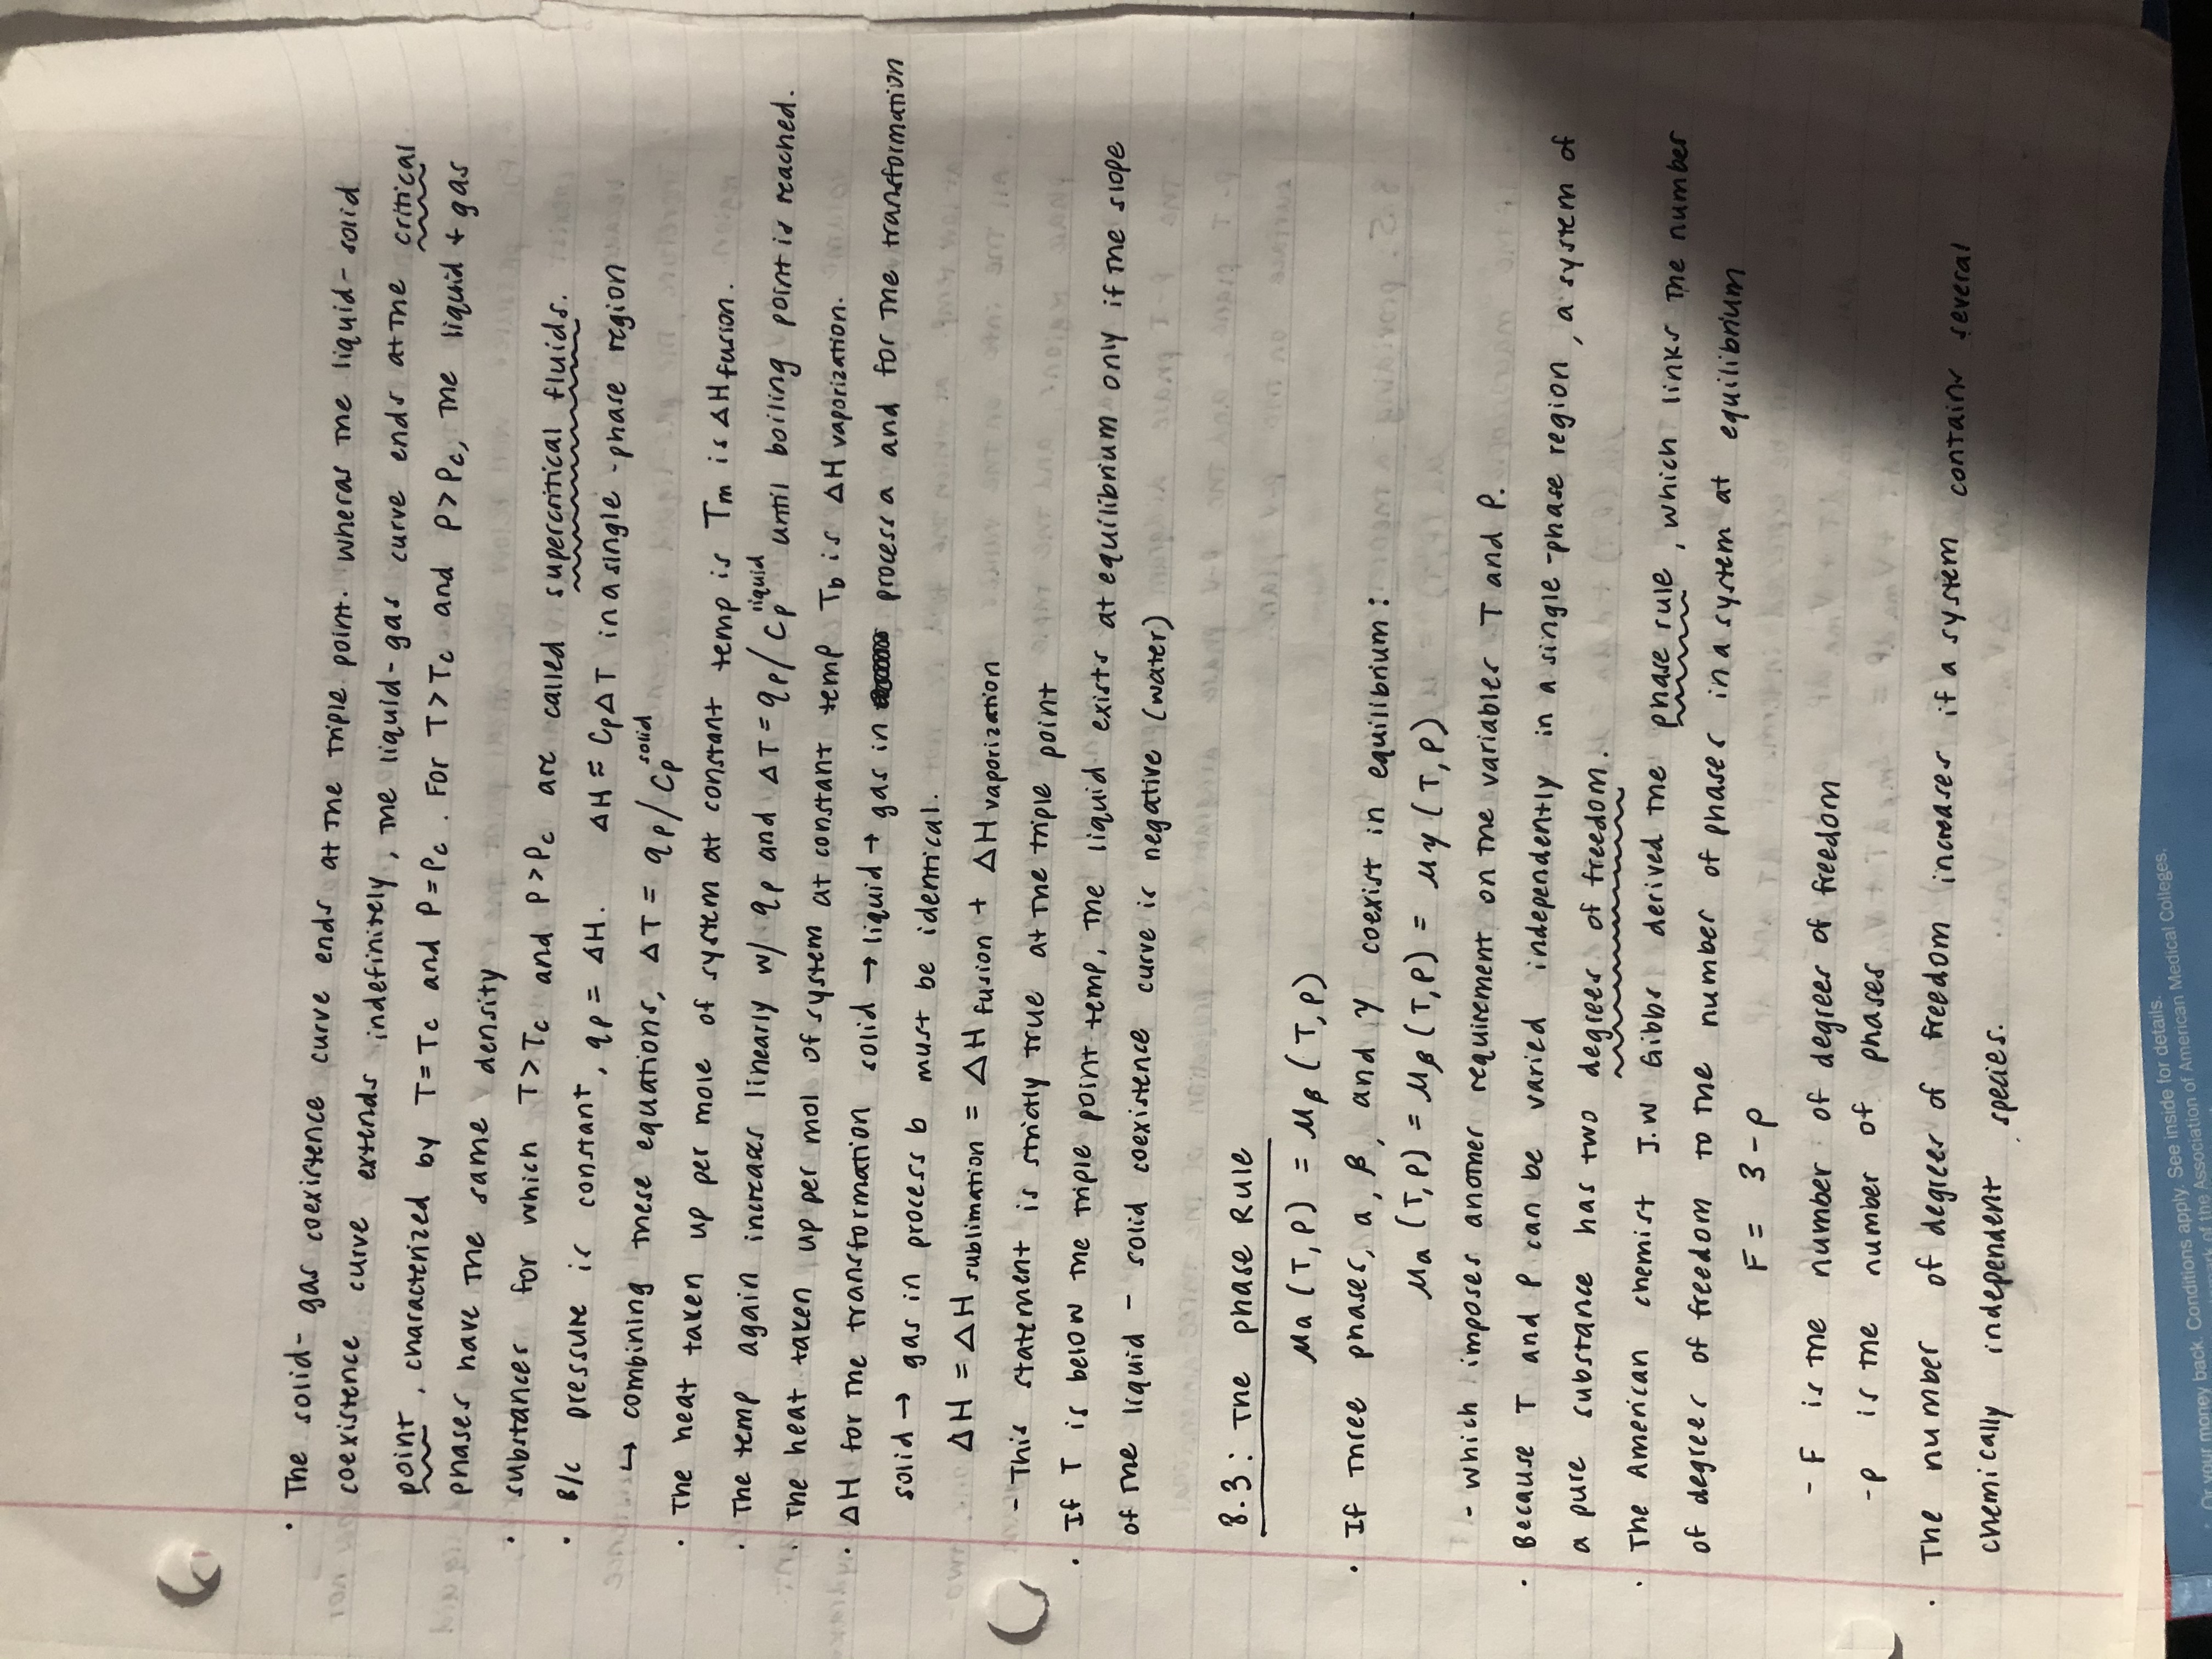 · The solid- gas coexistence curve ends at the triple point. wheras the liquid- solid
coexistence curve extends indefinitely, the liquid-gas curve ends at the critical
point, characterized by T=Tc and P=Pc. For T>Tc and P>Pc, the liquid + gas
phases have the same density
· substances for which T>Tc and P>Pc are called supercritical fluids.
· B/c pressure is constant, qp = ΔH. ΔH ≈ CpΔT in a single-phase region
↳ combining these equations, ΔT = qp/Cp^solid
· The heat taken up per mole of system at constant temp is Tm is ΔH fusion.
· The temp again increases linearly w/ qp and ΔT = qp/Cp^liquid until boiling point is reached.
· The heat taken up per mol of system at constant temp Tb is ΔH vaporization.
· ΔH for the transformation solid → liquid → gas in process a and for the transformation
solid → gas in process b must be identical.
ΔH = ΔH sublimation = ΔH fusion + ΔH vaporization
- This statement is strictly true at the triple point
· If T is below the triple point temp, the liquid exists at equilibrium only if the slope
of the liquid - solid coexistence curve is negative (water)
8.3: The phase Rule
μα (T,P) = μβ (T,P)
· If three phases, α, β, and γ coexist in equilibrium:
μα (T,P) = μβ (T,P) = μγ (T,P)
- which imposes another requirement on the variables T and P.
· Because T and P can be varied independently in a single-phase region, a system of
a pure substance has two degrees of freedom.
· The American chemist J.W Gibbs derived the phase rule, which links the number
of degrees of freedom to the number of phases in a system at equilibrium
F = 3-p
- F is the number of degrees of freedom
- p is the number of phases
· The number of degrees of freedom increases if a system contains several
chemically independent species.
Or your money back. Conditions apply. See inside for details.
of the Association of American Medical Colleges.